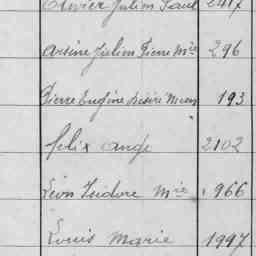 Olivier Julien Paul 2417
Arsène Julien Pierre Mie 296
Pierre Eugène Désiré Marie 193
Felix Ange 2102
Léon Isidore Mie 966
Louis Marie 1997